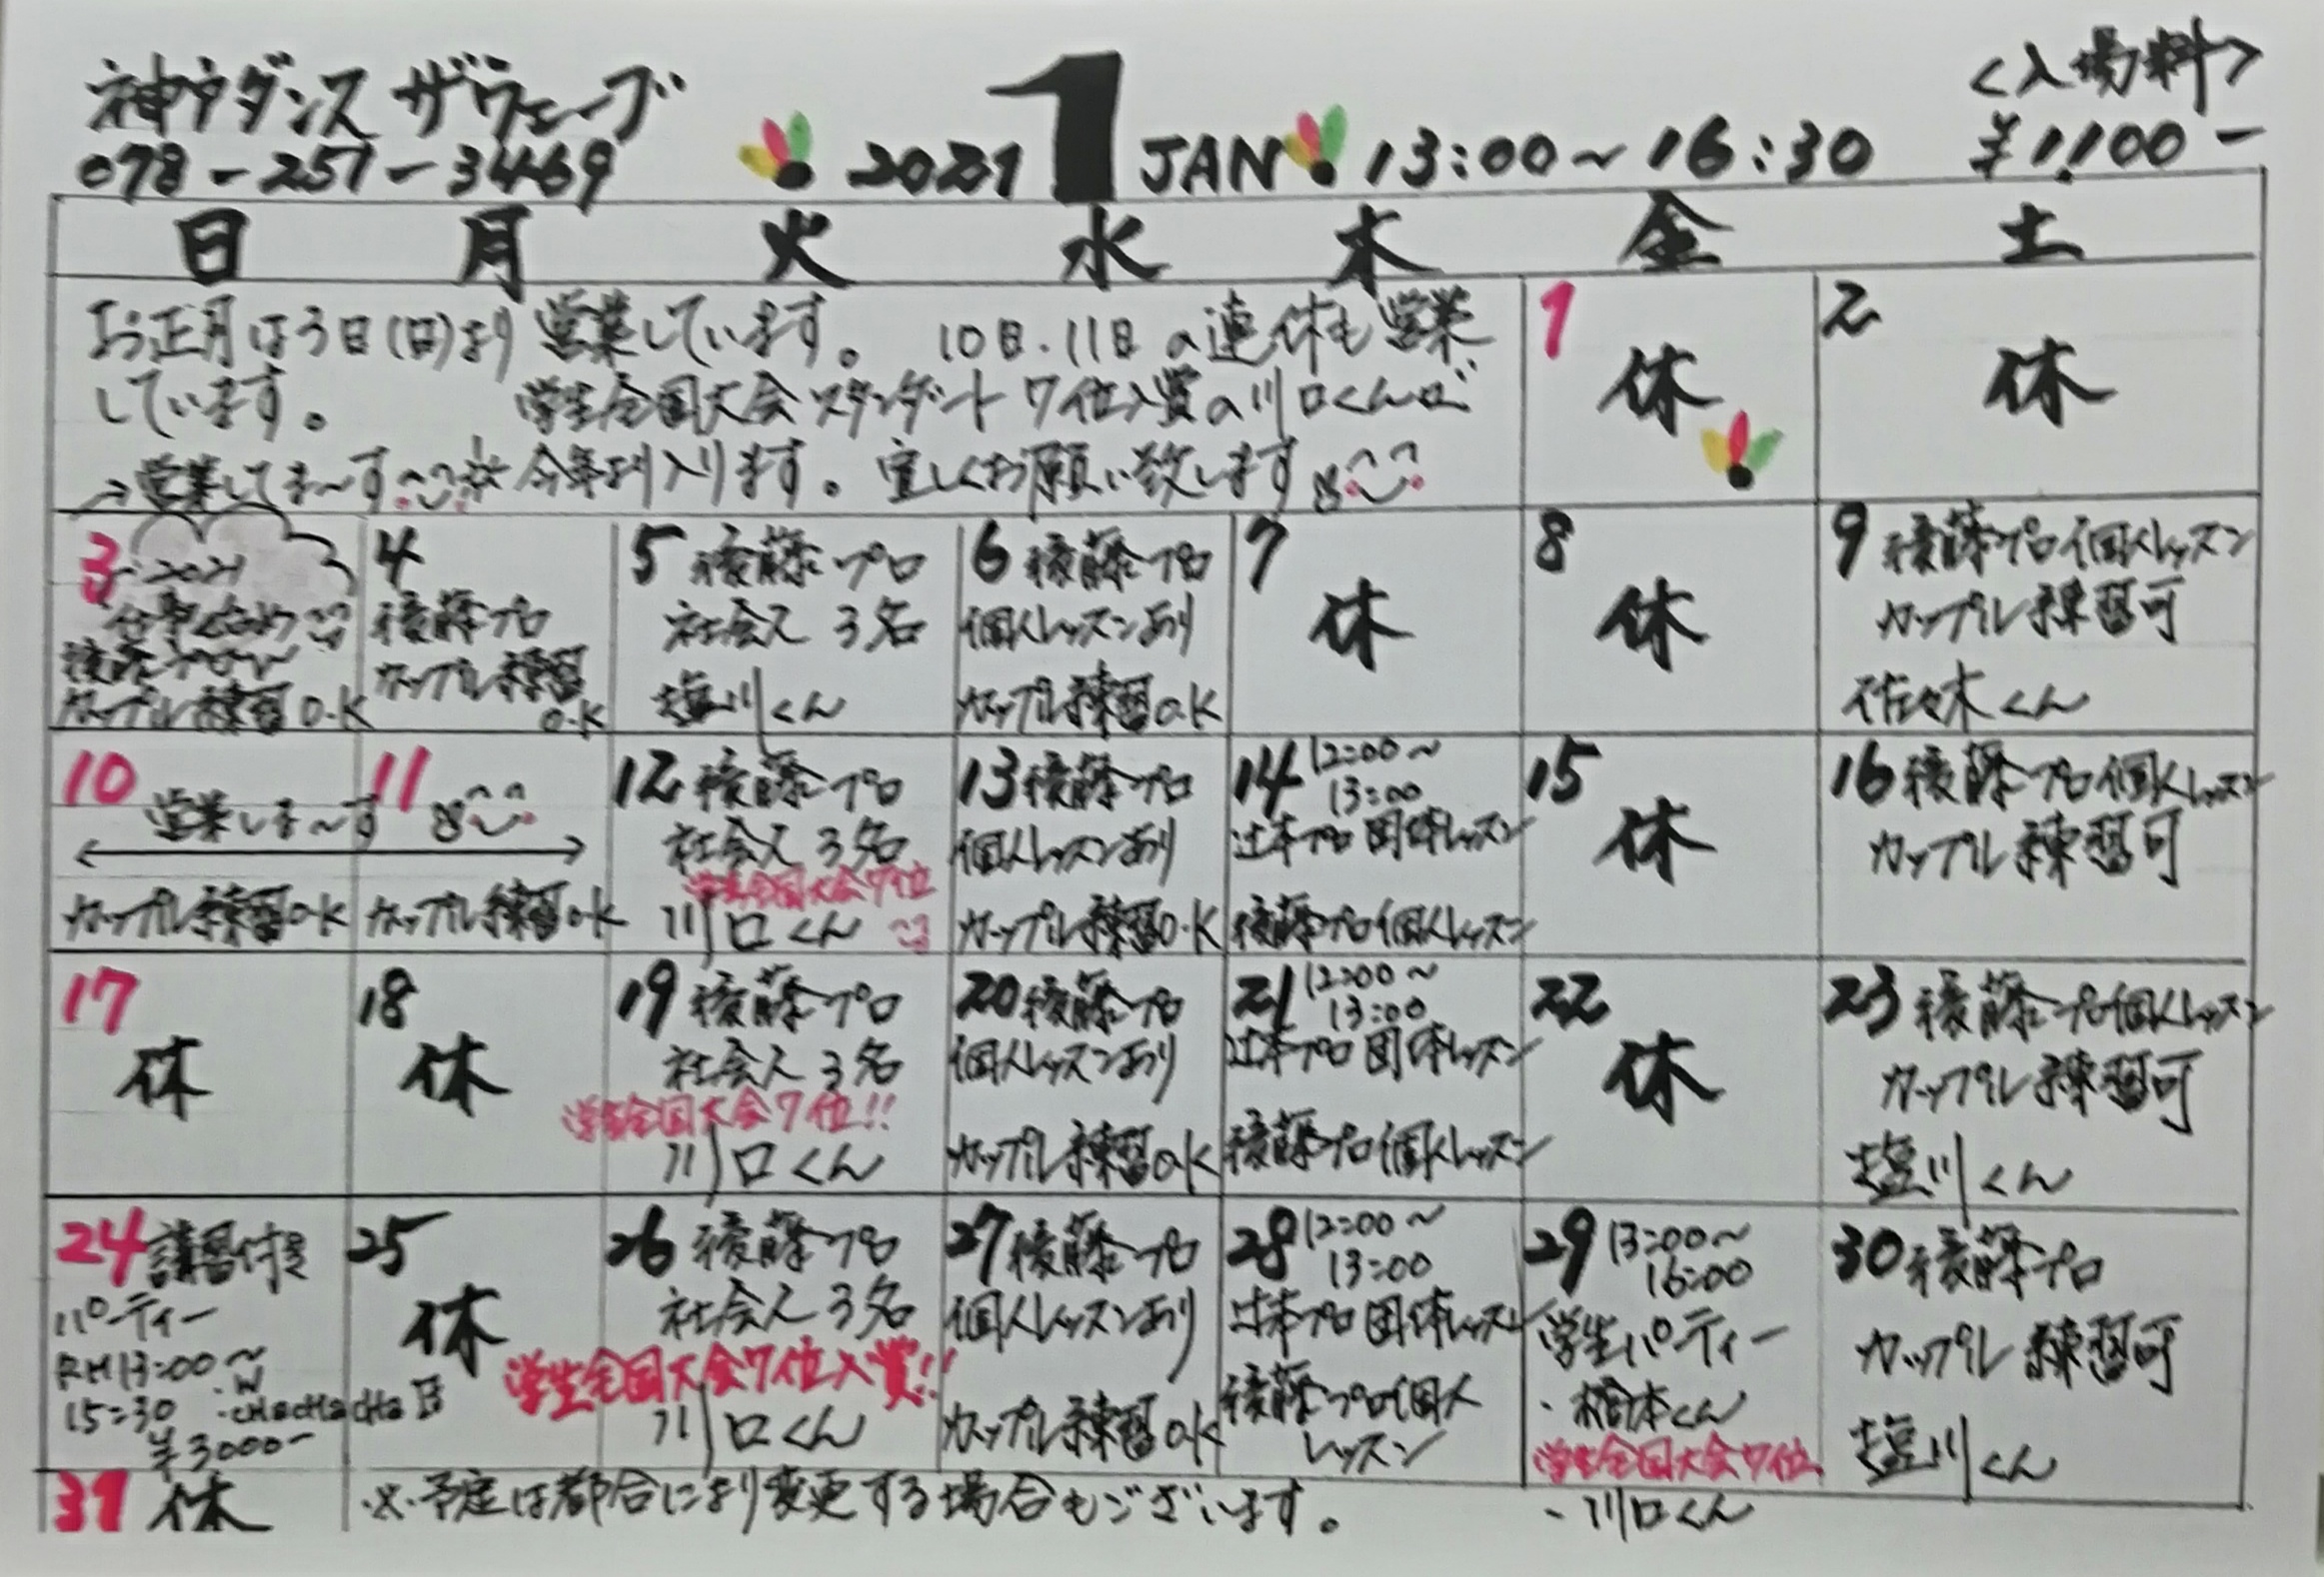 神戸ダンス ザウェーブ
078-251-3469
2021 1 JAN 13:00~16:30
<入場料>
¥1,100-
日 月 火 水 木 金 土
お正月は3日(日)より営業しています。 10日.11日の連休も営業
しています。 学生全国大会スタンダート7位入賞の川口くんが
→営業してま~す ※今年より入ります。宜しくお願い致します
1
休
2
休
3
2021
仕事始め
後藤プロ
カップル練習O.K
4
後藤プロ
カップル練習
O.K
5 後藤プロ
社会人 3名
塩川くん
6 後藤プロ
個人レッスンあり
カップル練習O.K
7
休
8
休
9 後藤プロ個人レッスン
カップル練習可
佐々木くん
10 11
営業しま~す
カップル練習O.K カップル練習O.K
12 後藤プロ
社会人 3名
学生全国大会7位
川口くん
13 後藤プロ
個人レッスンあり
カップル練習O.K
14 12:00~
13:00
辻本プロ団体レッスン
後藤プロ個人レッスン
15
休
16 後藤プロ個人レッスン
カップル練習可
17
休
18
休
19 後藤プロ
社会人 3名
学生全国大会7位!!
川口くん
20 後藤プロ
個人レッスンあり
カップル練習O.K
21 12:00~
13:00
辻本プロ団体レッスン
後藤プロ個人レッスン
22
休
23 後藤プロ個人レッスン
カップル練習可
塩川くん
24 講習付き
パーティー
PM13:00~
15:30 ・W
・CHACHACHA
¥3000-
25
休
26 後藤プロ
社会人 3名
学生全国大会7位入賞!!
川口くん
27 後藤プロ
個人レッスンあり
カップル練習O.K
28 12:00~
13:00
辻本プロ団体レッスン
後藤プロ個人
レッスン
29 13:00~
16:00
学生パーティー
・橋本くん
学生全国大会7位
・川口くん
30 後藤プロ
カップル練習可
塩川くん
31 休
※予定は都合により変更する場合もございます。